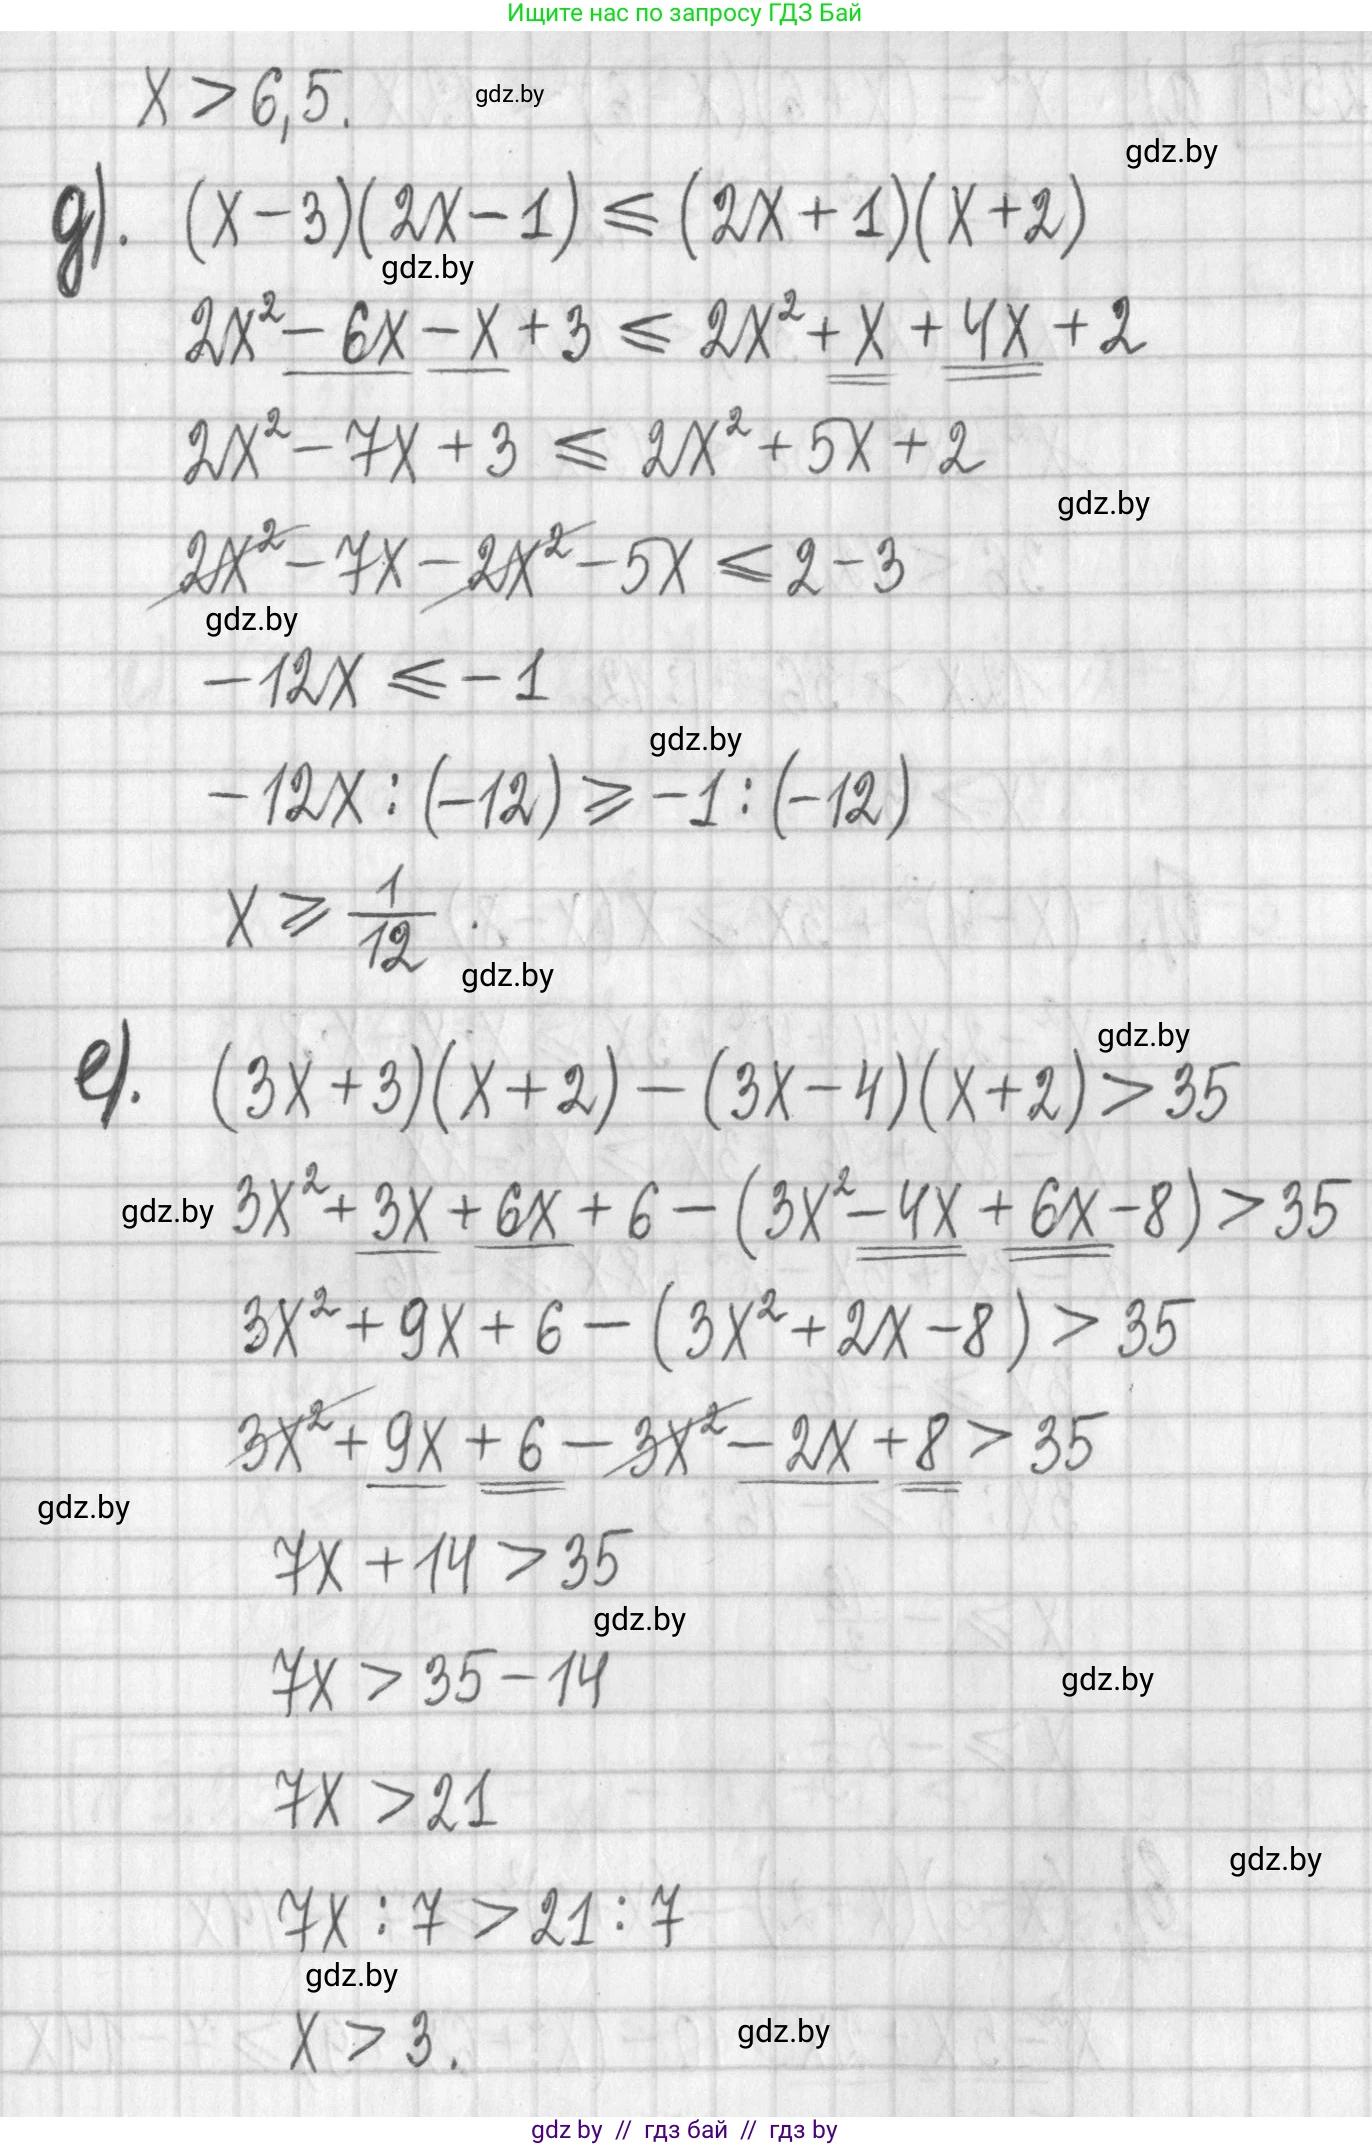 Ищите нас по запросу ГДЗ Бай
x > 6,5.
gdz.by
gdz.by
д). (x - 3)(2x - 1) ⩽ (2x + 1)(x + 2)
gdz.by
2x² - 6x - x + 3 ⩽ 2x² + x + 4x + 2
2x² - 7x + 3 ⩽ 2x² + 5x + 2
gdz.by
2x² - 7x - 2x² - 5x ⩽ 2 - 3
gdz.by
-12x ⩽ -1
gdz.by
-12x : (-12) ⩾ -1 : (-12)
x ⩾ 1/12.
gdz.by
gdz.by
е). (3x + 3)(x + 2) - (3x - 4)(x + 2) > 35
gdz.by 3x² + 3x + 6x + 6 - (3x² - 4x + 6x - 8) > 35
3x² + 9x + 6 - (3x² + 2x - 8) > 35
3x² + 9x + 6 - 3x² - 2x + 8 > 35
gdz.by
7x + 14 > 35
gdz.by
7x > 35 - 14
gdz.by
7x > 21
gdz.by
7x : 7 > 21 : 7
gdz.by
x > 3.
gdz.by
gdz by // гдз бай // гдз by